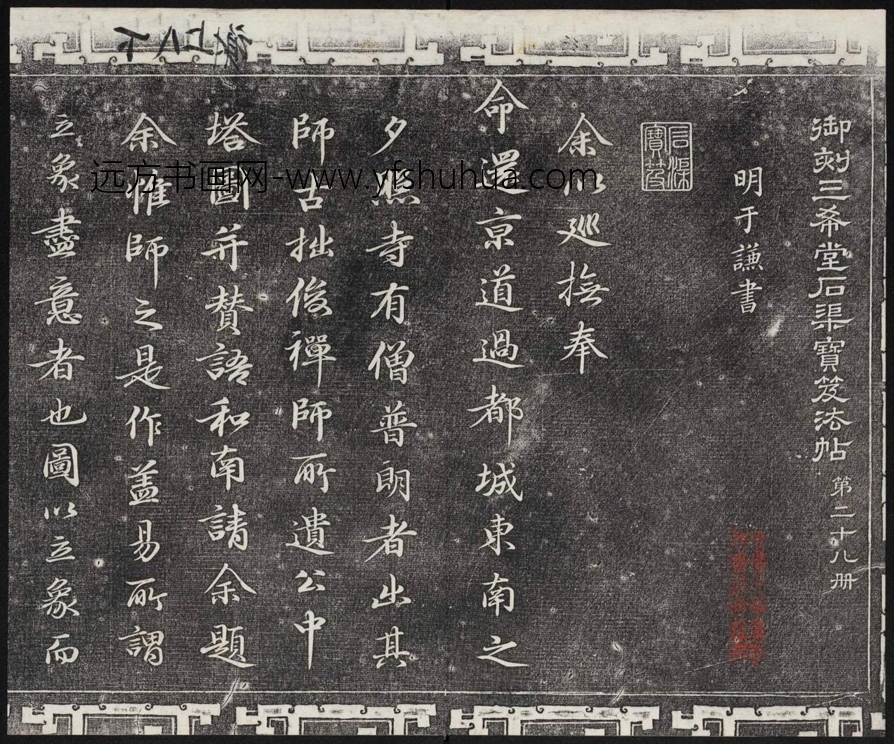 御刻三希堂石渠寶笈法帖 第二十八册
明于謙書
余以巡撫奉
命還京道過都城東南之
夕照寺有僧普朗者出其
師古拙俊禪師所遺公中
塔圖并賛語和南請余題
余惟師之是作盖易所謂
立象盡意者也圖以立象而
远方书画网-www.yfshuhua.com